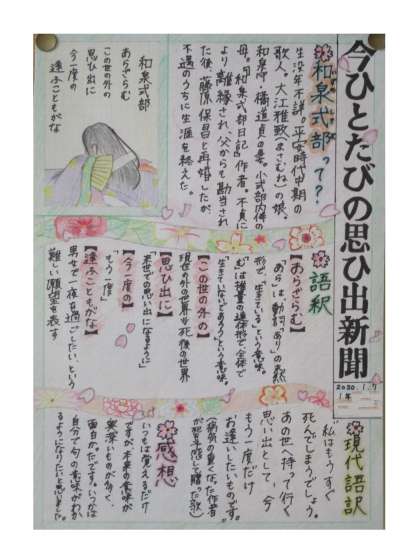 今ひとたびの思ひ出新聞
2020.1.7
1年
和泉式部って?
生没年不詳。平安時代中期の
歌人。大江雅致(まさむね)の娘。
和泉守 橘道貞の妻。小式部内侍の
母。「和泉式部日記」作者。不貞に
より離縁され、父からも勘当され
た後、藤原保昌と再婚したが、
不遇のうちに生涯を終えた。
和泉式部
あらざらむ
この世の外の
思ひ出に
今一度の
逢ふこともがな
語釈
【あらざらむ】
「あら」は動詞「あり」の未然
形で、「生きている」という意味。
「む」は推量の連体形で、全体で
「生きていないであろう」という意味。
【この世の外の】
現世の外の世界を死後の世界
【思ひ出に】
来世での思い出になるように
【今一度の】
「もう一度」
【逢ふこともがな】
男女で一夜を過ごしたい、という
難しい願望を表す
現代語訳
私はもうすぐ
死んでしまうでしょう。
あの世へ持って行く
思い出として、今
もう一度だけ
お逢いしたいものです。
(病気の重くなった作者
が死を際して贈った歌)
感想
いつもは覚えるだけ
ですが、本来の意味が
奥深いものが多く、
面白かったです。いつかは
自分で句の意味がわか
るようになりたいと思いました。